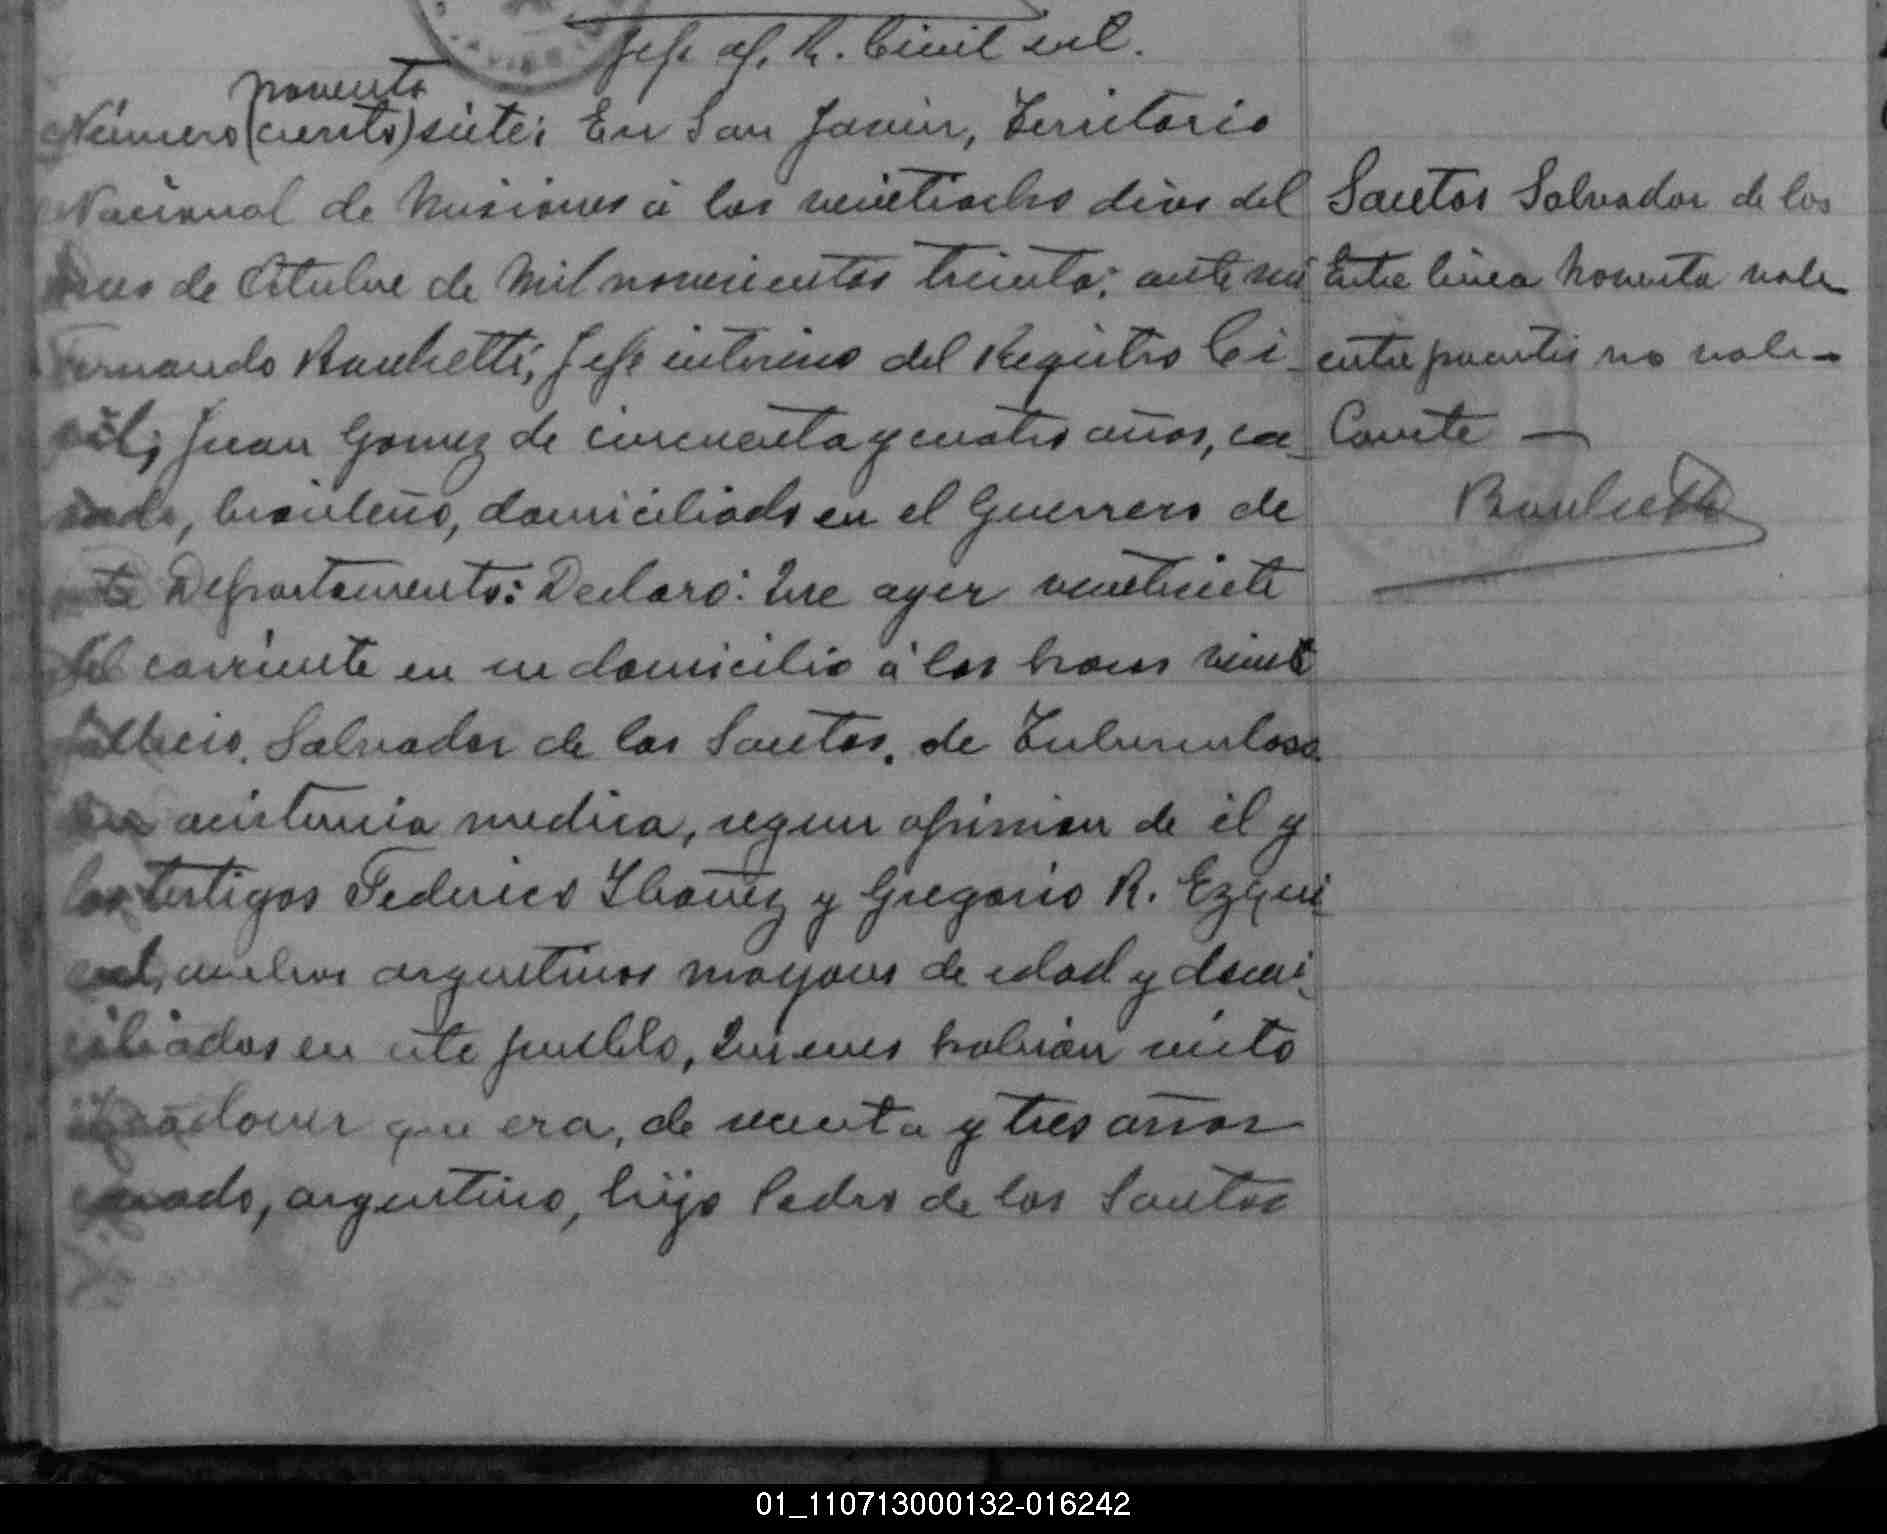 Jefe of. R. Civil int.
noventa
Número (ciento) siete; En San Javier, Territorio
Nacional de Misiones á los veintiocho dias del
mes de Octubre de Mil novecientos treinta; ante mi
Fernando Jefe interino del Registro Ci-
vil; Juan Gomez de cincuenta y cuatro años, ca-
sado, brasileño, domiciliado en el Guerrero de
este Departamento: Declaró: Que ayer veintisiete
del corriente en su domicilio á las horas veinte
fallecio. Salvador de los Santos. de Tuberculosis
sin asistencia medica, segun opinion de él y
los testigos Federico Ibañez y Gregorio R. Ezqui-
vel, ambos argentinos mayores de edad y domi-
ciliados en este pueblo, Quienes habian visto
el cadaver que era, de y tres años
casado, argentino, hijo Pedro de los Santos
Santos Salvador de los
Entre linea noventa vale
entre parentis no vale-
Conste —
01_110713000132-016242